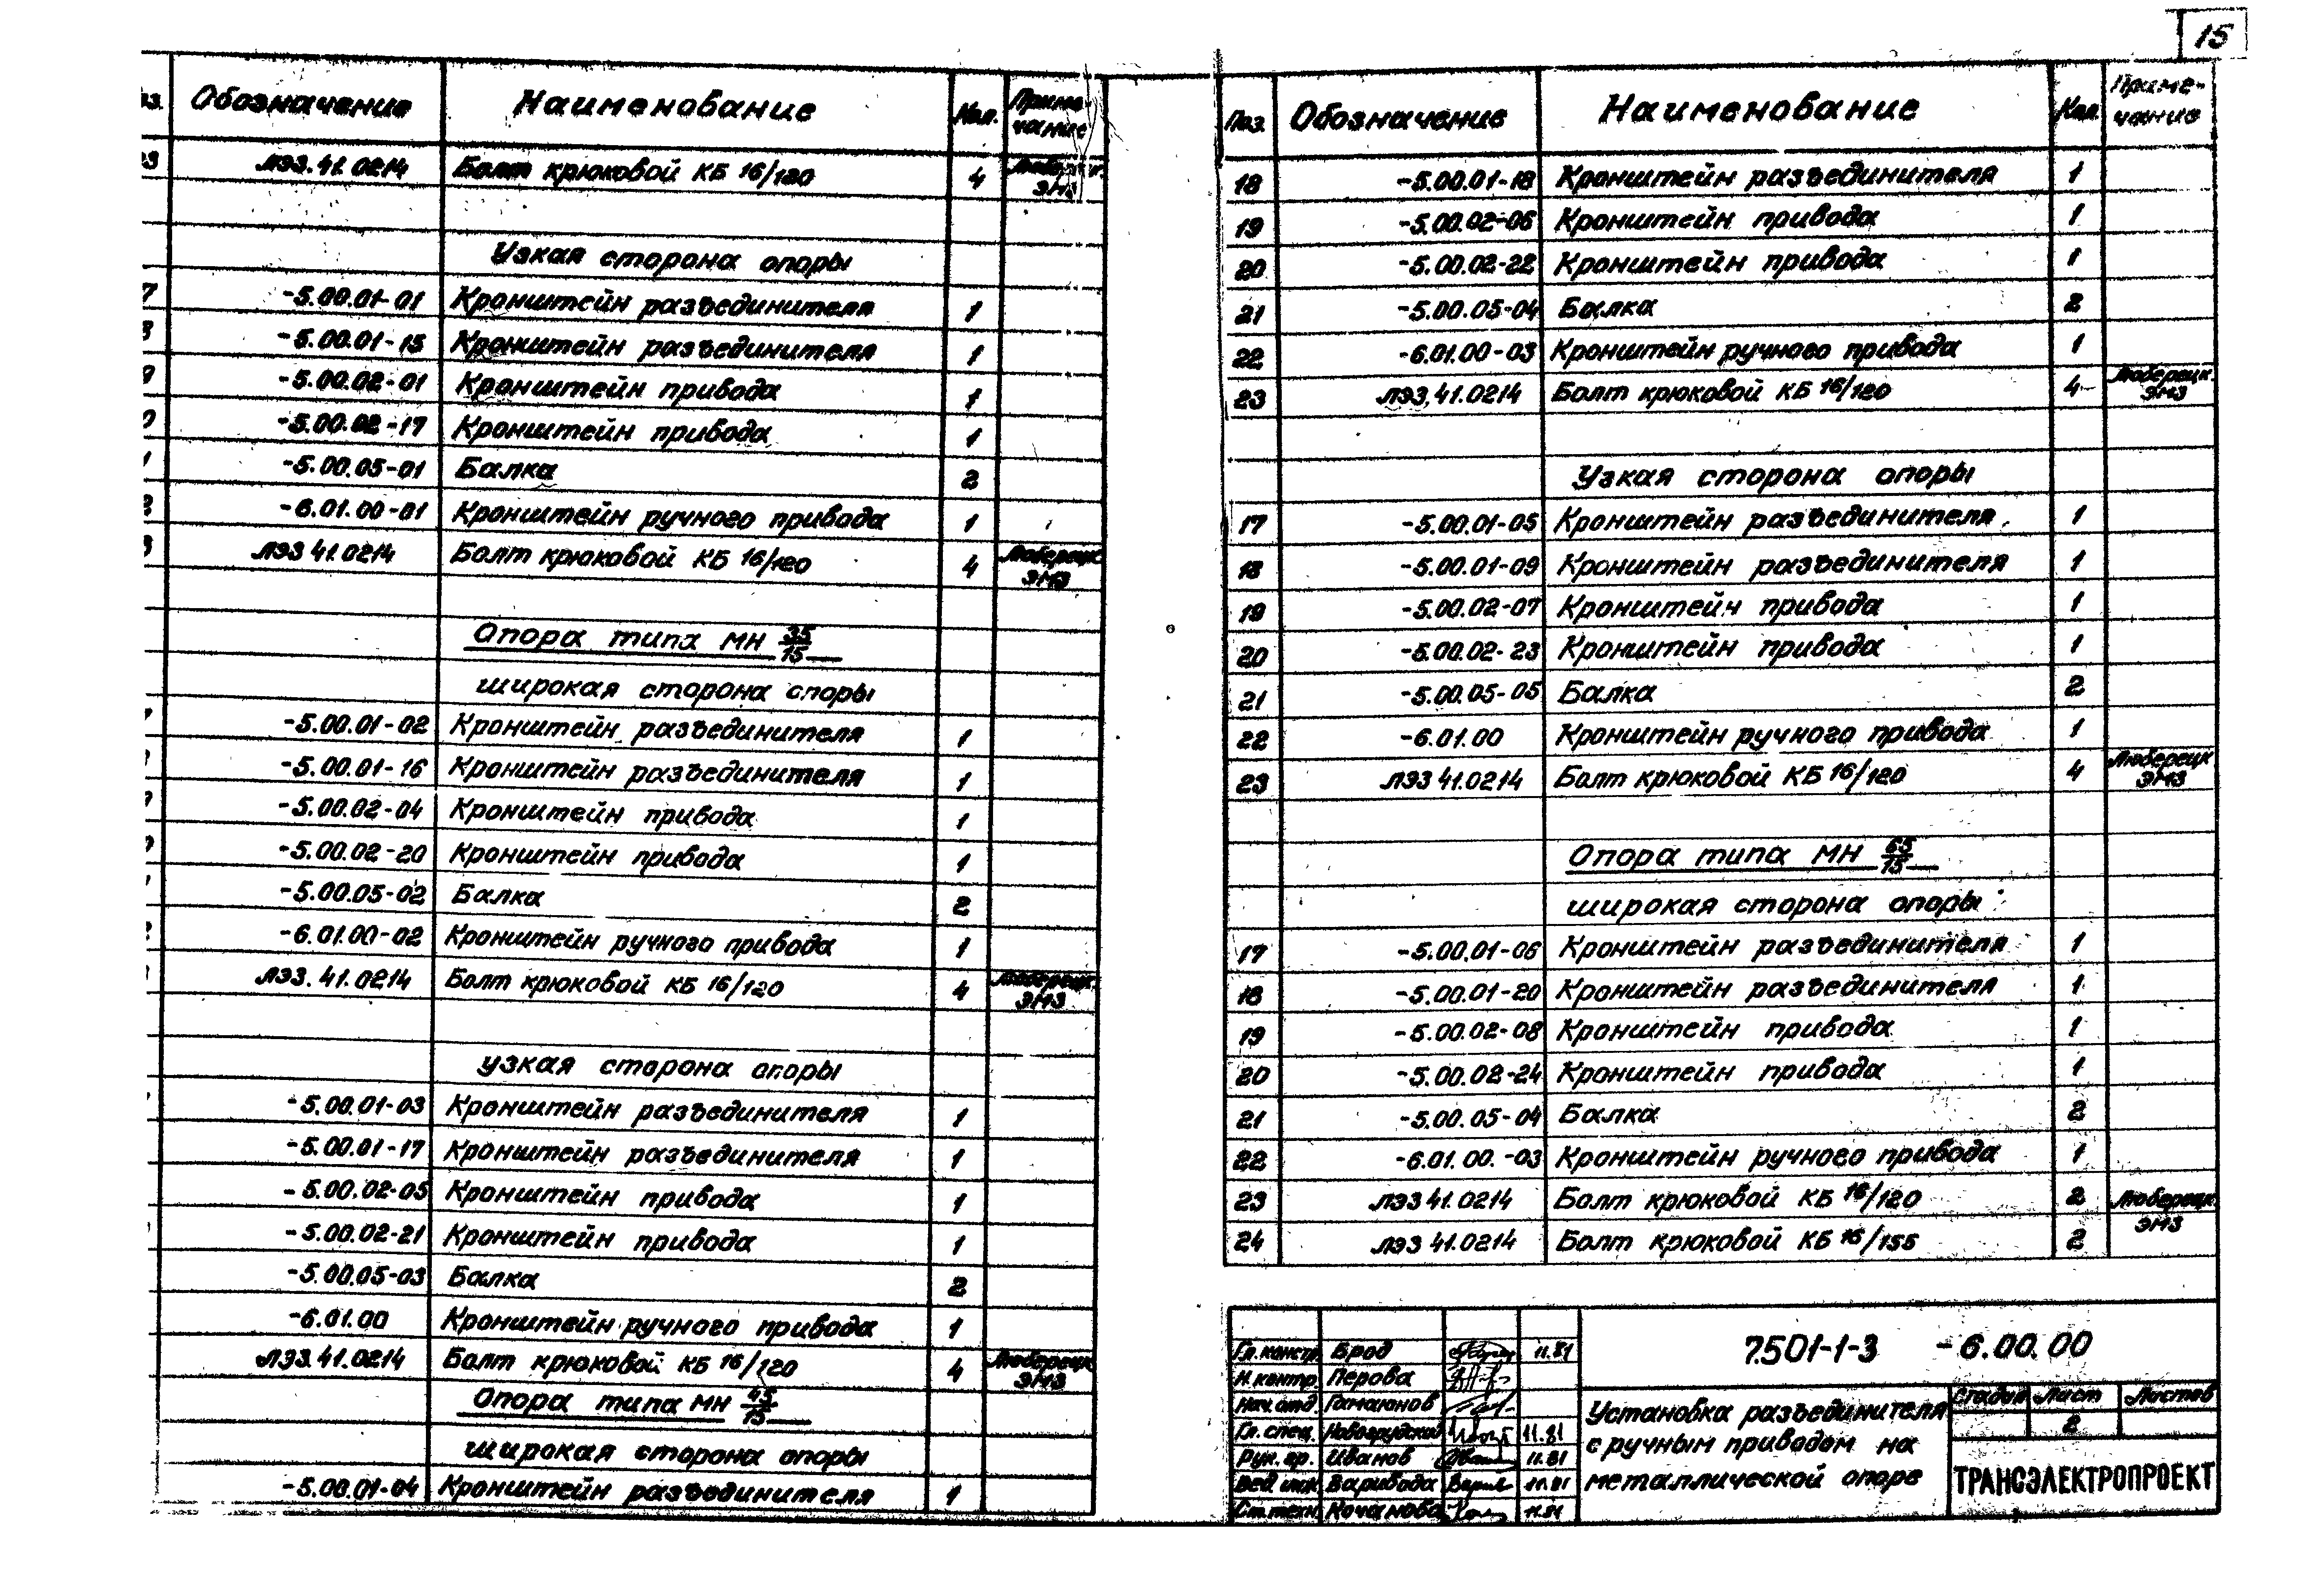 15
Обозначение Наименование Кол. Приме-
чание
23 ЛЭЗ.41.0214 Болт крюковой КБ 16/120 4 Люберецк.
ЭМЗ
Узкая сторона опоры
7 -5.00.01-01 Кронштейн разъединителя 1
8 -5.00.01-15 Кронштейн разъединителя 1
9 -5.00.02-01 Кронштейн привода 1
0 -5.00.02-17 Кронштейн привода 1
1 -5.00.05-01 Балка 2
2 -6.01.00-01 Кронштейн ручного привода 1
3 ЛЭЗ 41.0214 Болт крюковой КБ 16/120 4 Люберецк
ЭМЗ
Опора типа МН 35/15
широкая сторона опоры
-5.00.01-02 Кронштейн разъединителя 1
-5.00.01-16 Кронштейн разъединителя 1
-5.00.02-04 Кронштейн привода 1
-5.00.02-20 Кронштейн привода 1
-5.00.05-02 Балка 2
-6.01.00-02 Кронштейн ручного привода 1
ЛЭЗ.41.0214 Болт крюковой КБ 16/120 4 Люберецк.
ЭМЗ
узкая сторона опоры
-5.00.01-03 Кронштейн разъединителя 1
-5.00.01-17 Кронштейн разъединителя 1
-5.00.02-05 Кронштейн привода 1
-5.00.02-21 Кронштейн привода 1
-5.00.05-03 Балка 2
-6.01.00 Кронштейн ручного привода 1
ЛЭЗ.41.0214 Болт крюковой КБ 16/120 4 Люберецк
ЭМЗ
Опора типа МН 45/15
широкая сторона опоры
-5.00.01-04 Кронштейн разъединителя 1
Поз. Обозначение Наименование Кол. Приме-
чание
18 -5.00.01-18 Кронштейн разъединителя 1
19 -5.00.02-06 Кронштейн привода 1
20 -5.00.02-22 Кронштейн привода 1
21 -5.00.05-04 Балка 2
22 -6.01.00-03 Кронштейн ручного привода 1
23 ЛЭЗ.41.0214 Болт крюковой КБ 16/120 4 Люберецк.
ЭМЗ
Узкая сторона опоры
17 -5.00.01-05 Кронштейн разъединителя 1
18 -5.00.01-09 Кронштейн разъединителя 1
19 -5.00.02-07 Кронштейн привода 1
20 -5.00.02-23 Кронштейн привода 1
21 -5.00.05-05 Балка 2
22 -6.01.00 Кронштейн ручного привода 1
23 ЛЭЗ 41.0214 Болт крюковой КБ 16/120 4 Люберецк
ЭМЗ
Опора типа МН 65/15
широкая сторона опоры
17 -5.00.01-06 Кронштейн разъединителя 1
18 -5.00.01-20 Кронштейн разъединителя 1
19 -5.00.02-08 Кронштейн привода 1
20 -5.00.02-24 Кронштейн привода 1
21 -5.00.05-04 Балка 2
22 -6.01.00.-03 Кронштейн ручного привода 1
23 ЛЭЗ 41.0214 Болт крюковой КБ 16/120 2 Люберецк.
ЭМЗ
24 ЛЭЗ 41.0214 Болт крюковой КБ 16/155 2
7.501-1-3 -6.00.00
Гл.констр. Брод 11.81
Н.контр. Перова
Нач.отд Гамаюнов
Гл.спец. Новогрудский 11.81
Рук.гр. Иванов 11.81
Вед.инж. Варивода 11.81
Ст.техн. Кочанова 11.81
Установка разъединителя
с ручным приводом на
металлической опоре
Стадия Лист Листов
2
ТРАНСЭЛЕКТРОПРОЕКТ